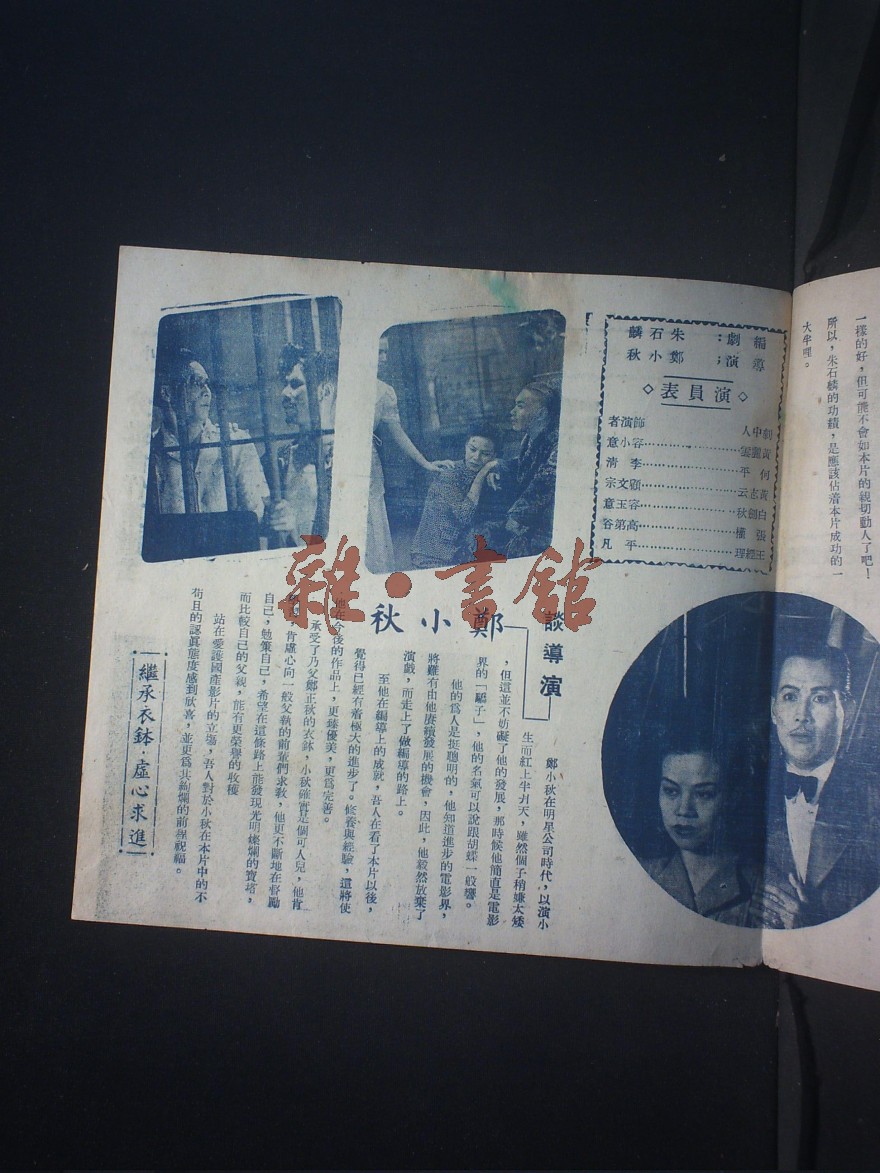 一樣的好，但可能不會如本片的親切動人了吧！
所以，朱石麟的功績，是應該佔着本片成功的一
大半哩。
編劇：朱石麟
導演；鄭小秋
◇演員表◇
劇中人 飾演者
黃麗雲……………容小意
何平……………李清
黃志云……………顧文宗
白劍秋……………容玉意
張權……………高第谷
王經理……………平凡
談導演
鄭小秋
鄭小秋在明星公司時代，以演小
生而紅上半爿天，雖然個子稍嫌太矮
，但這並不妨礙了他的發展，那時候他簡直是電影
界的「驕子」，他的名氣可以說跟胡蝶一般響。
他的爲人是挺聰明的，他知道進步的電影界，
將難有由他賡續發展的機會，因此，他毅然放棄了
演戲，而走上了做編導的路上。
至他在編導上的成就，吾人在看了本片以後，
覺得已經有着極大的進步了。修養與經驗，這將使
他在今後的作品上，更臻優美，更爲完善。
承受了乃父鄭正秋的衣鉢，小秋確實是個可人兒，他肯
肯虛心向一般父執的前輩們求教，他更不斷地在督勵
自己，勉策自己，希望在這條路上能發現光明燦爛的寶塔，
而比較自己的父親，能有更榮譽的收穫
站在愛護國產影片的立塲，吾人對於小秋在本片中的不
苟且的認眞態度感到欣喜，並更爲其絢爛的前程祝福。
繼承衣鉢·虛心求進
雜·書館